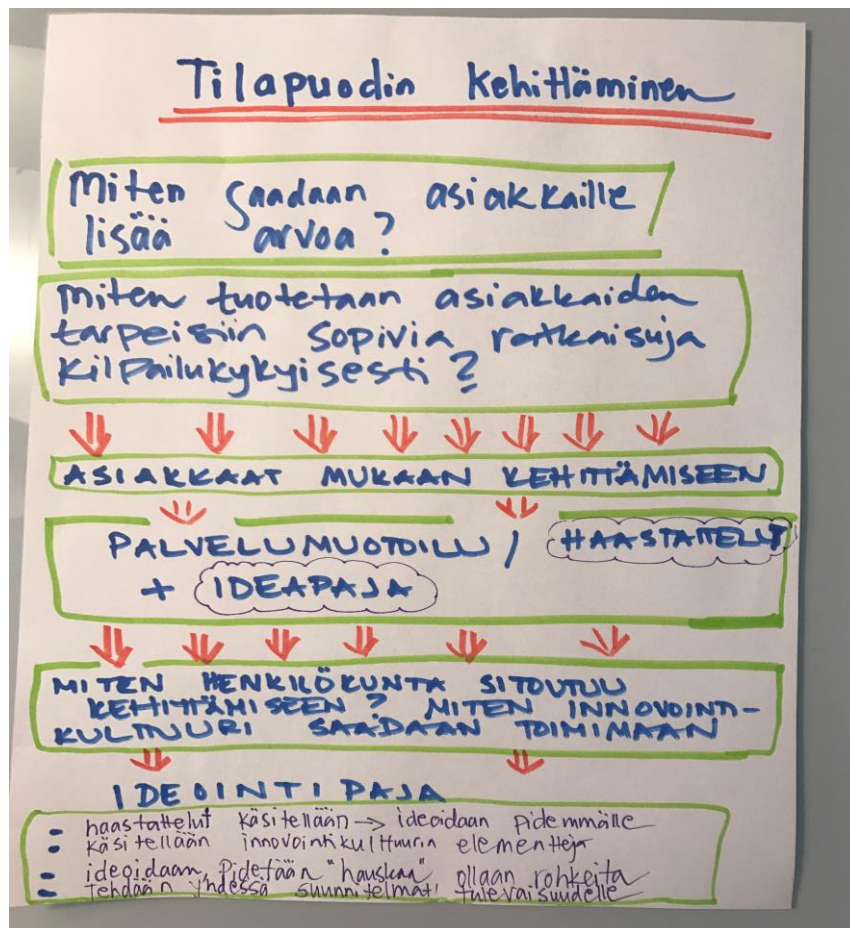 Tilapuodin Kehittäminen
Miten saadaan asiakkaille
lisää arvoa?
Miten tuotetaan asiakkaiden
tarpeisiin sopivia ratkaisuja
kilpailukykyisesti?
ASIAKKAAT MUKAAN KEHITTÄMISEEN
PALVELUMUOTOILU / HAASTATTELUT
+ IDEAPAJA
MITEN HENKILÖKUNTA SITOUTUU
KEHITTÄMISEEN? MITEN INNOVOINTI-
KULTTUURI SAADAAN TOIMIMAAN
IDEOINTIPAJA
- haastattelut käsitellään → ideoidaan pidemmälle
- käsitellään innovointikulttuurin elementtejä
- ideoidaan, Pidetään "hauskaa" ollaan rohkeita
- tehdään yhdessä suunnitelmat! tulevaisuudelle